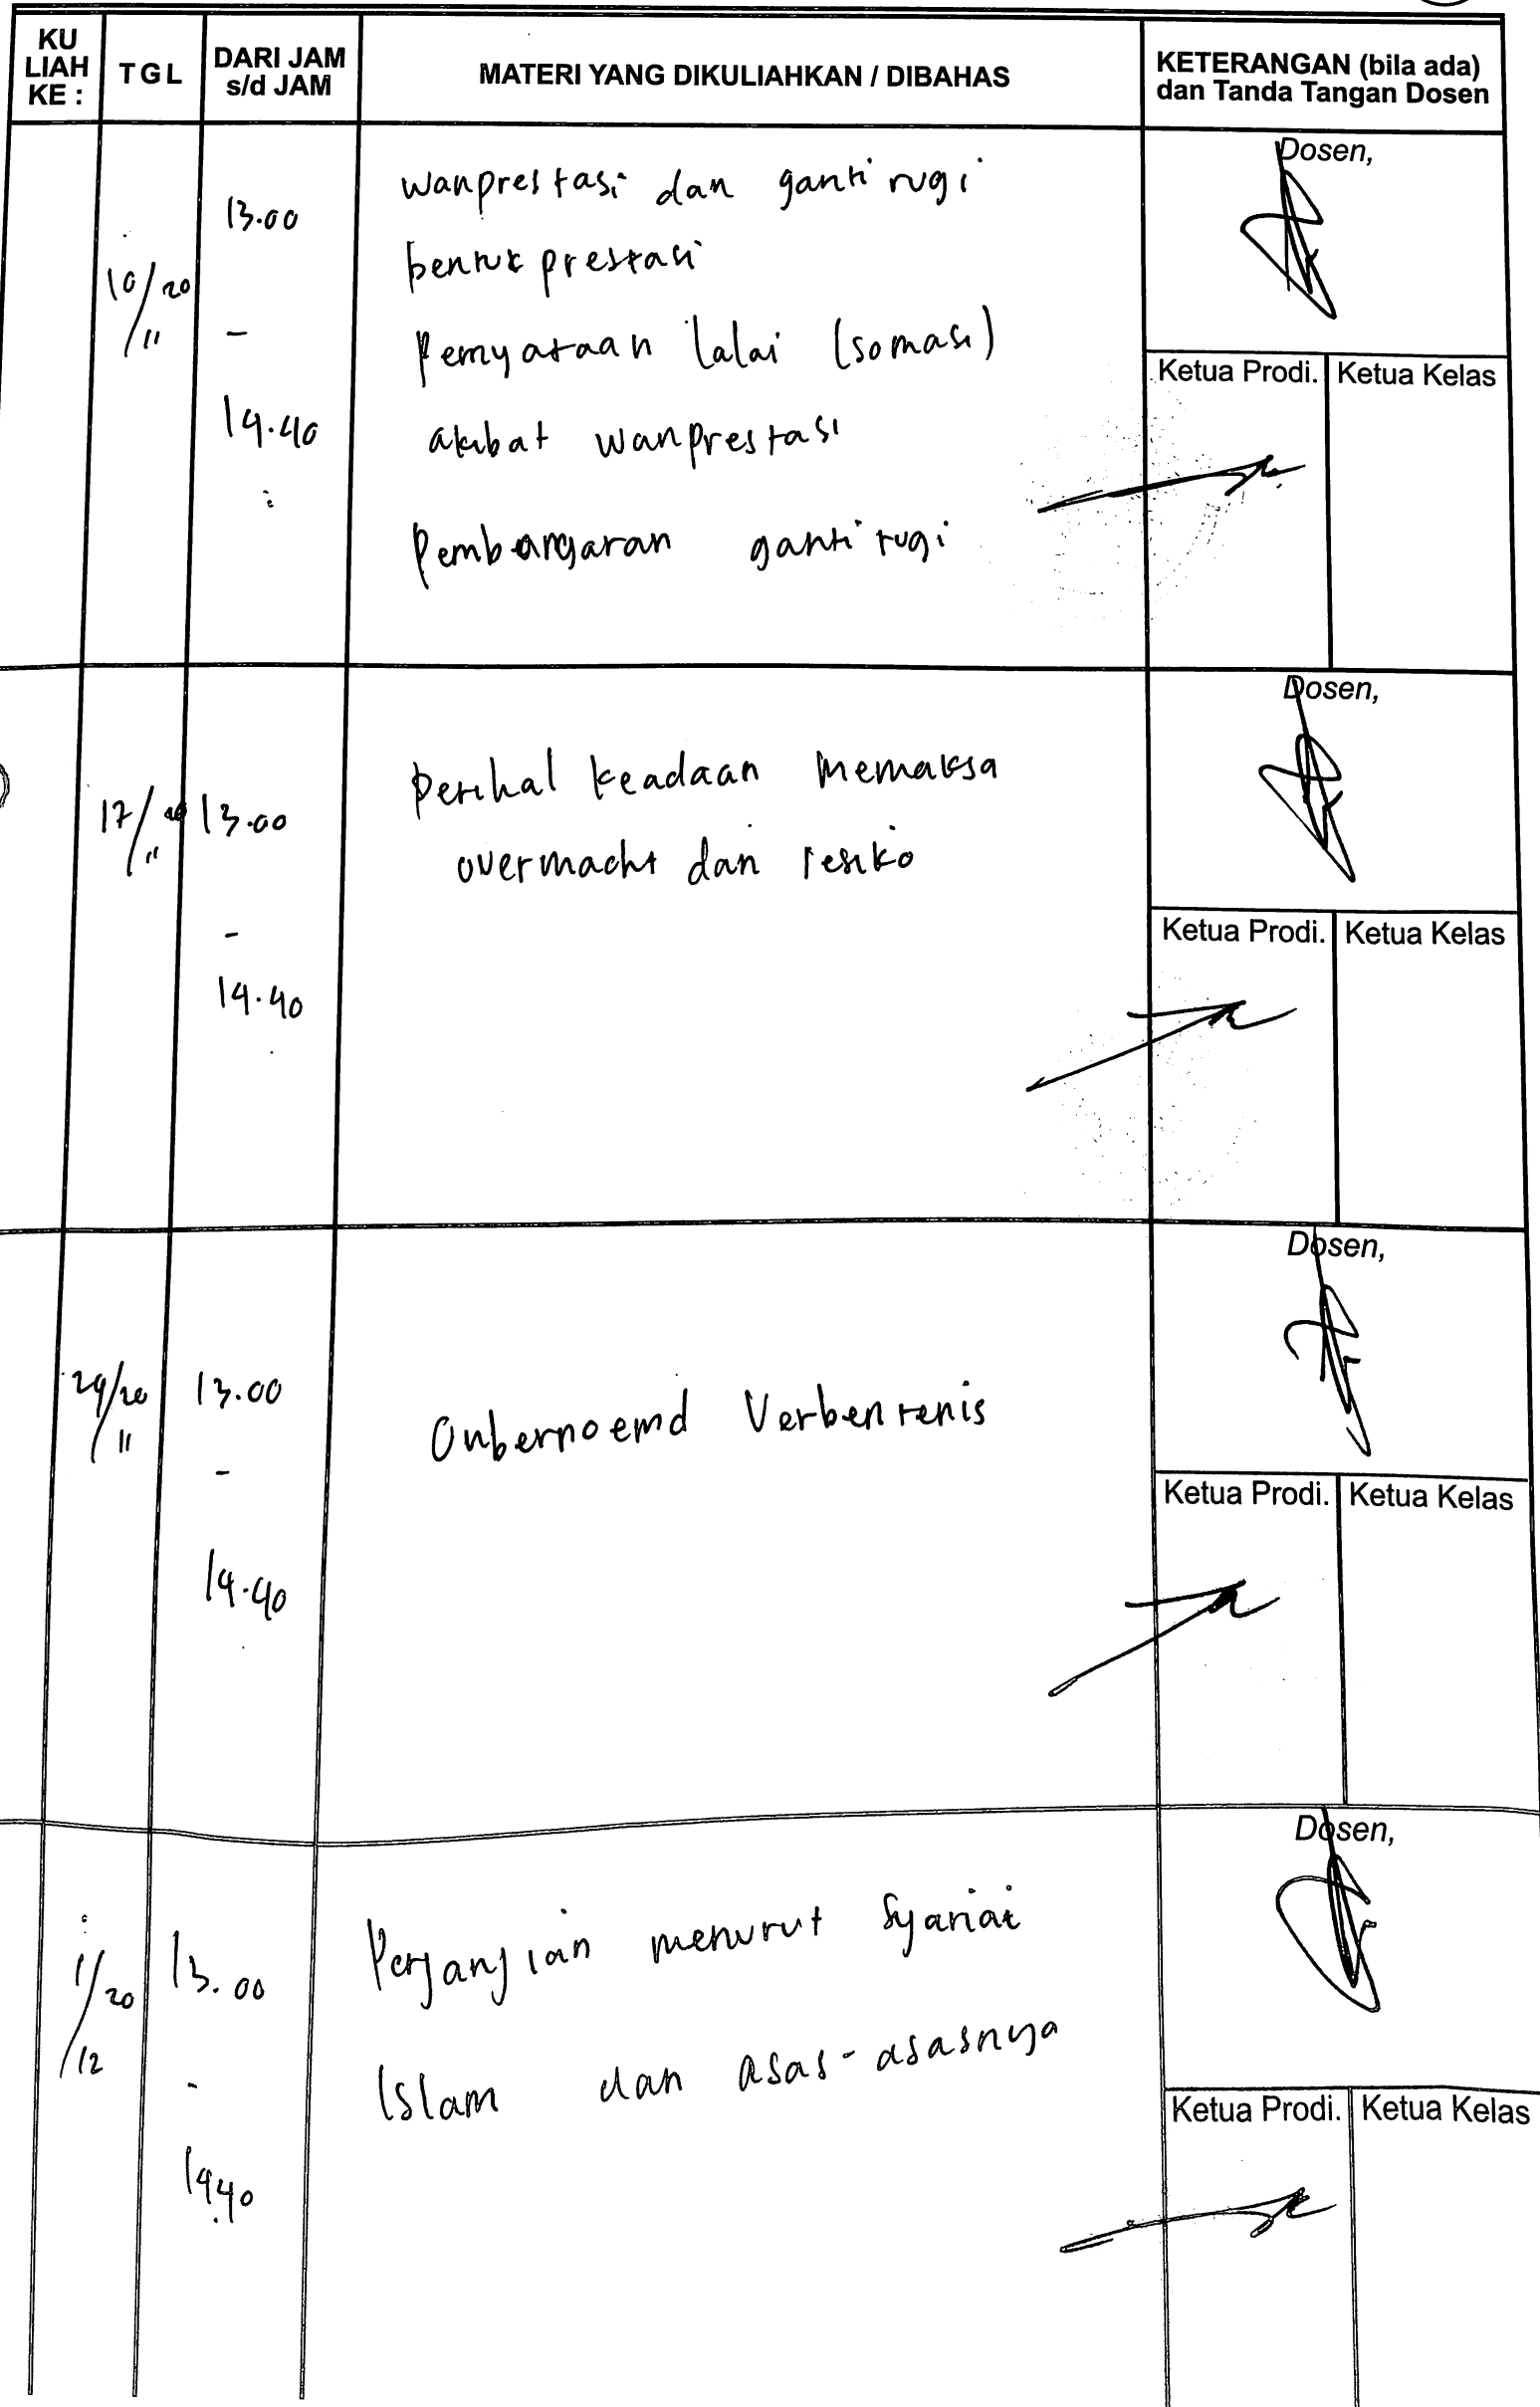 KU
LIAH
KE :
TGL
DARI JAM
s/d JAM
MATERI YANG DIKULIAHKAN / DIBAHAS
KETERANGAN (bila ada)
dan Tanda Tangan Dosen
10/20
/11
13.00
-
14.40
wanprestasi dan ganti rugi
bentuk prestasi
Pernyataan lalai (somasi)
akibat wanprestasi
Pembangaran ganti rugi
Dosen,
Ketua Prodi. Ketua Kelas
17/20
/11
13.00
-
14.40
Perihal keadaan memaksa
overmacht dan resiko
Dosen,
Ketua Prodi. Ketua Kelas
24/20
/11
13.00
-
14.40
Onbernoemd Verbentenis
Dosen,
Ketua Prodi. Ketua Kelas
1/20
/12
13.00
-
14.40
Perjanjian menurut Syariat
Islam dan asas-asasnya
Dosen,
Ketua Prodi. Ketua Kelas